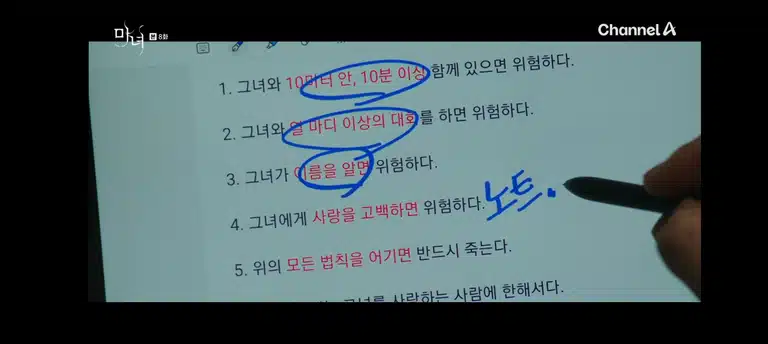 마녀 8회
Channel A
1. 그녀와 10미터 안, 10분 이상 함께 있으면 위험하다.
2. 그녀와 열 마디 이상의 대화를 하면 위험하다.
3. 그녀가 이름을 알면 위험하다.
4. 그녀에게 사랑을 고백하면 위험하다. 노트.
5. 위의 모든 법칙을 어기면 반드시 죽는다.
그녀를 사랑하는 사람에 한해서다.